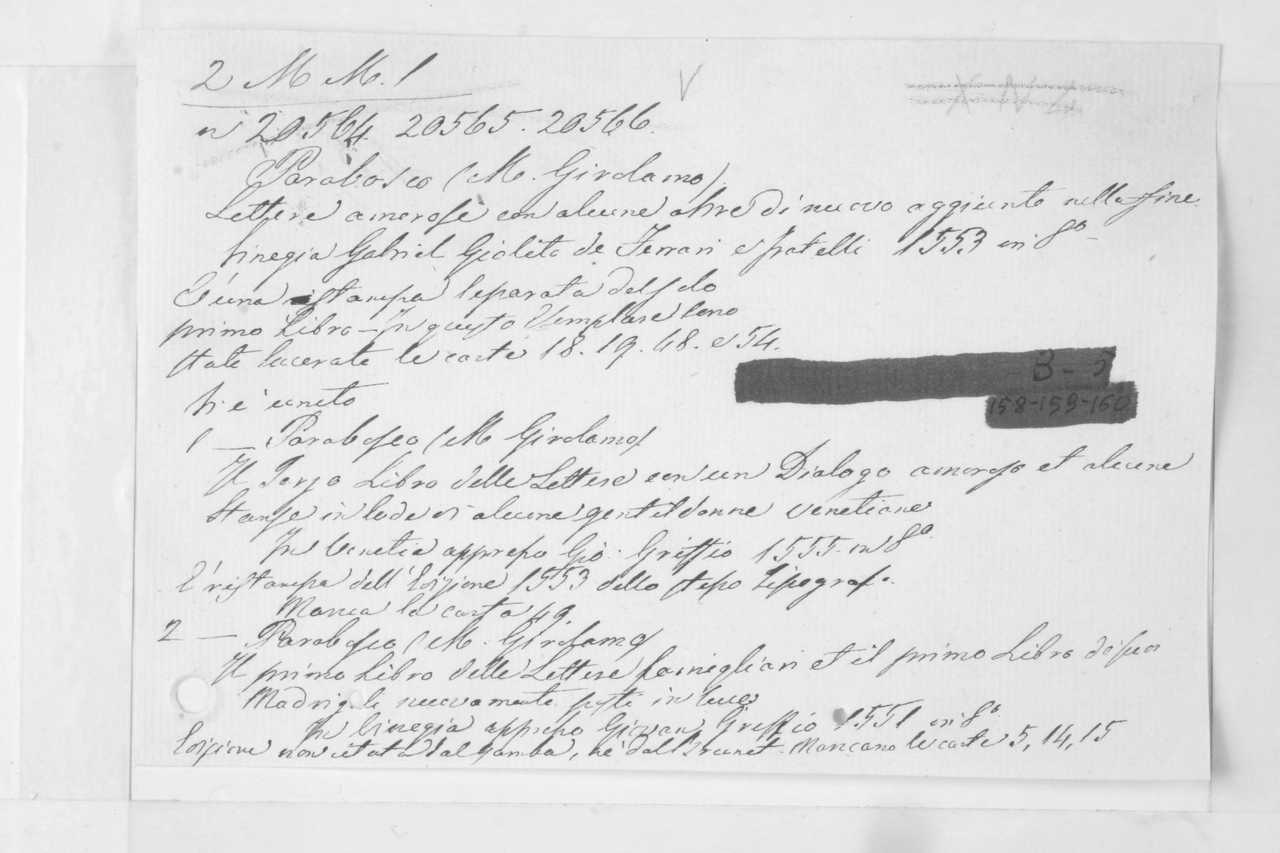 2 M M. 1
n 20564 20565. 20566.
Parabosco (M. Girolamo)
Lettere amorose con alcune altre di nuovo aggiunte nella fine
Vinegia Gabriel Giolito de Ferrari e fratelli 1553 in 8°
È una ristampa separata del solo
primo Libro — In questo Esemplare sono
state lacerate le carte 18. 19. 48. e 54.
B - 5
158-159-160
Vi è unito
1 — Parabosco (M Girolamo)
Il Terzo Libro delle Lettere con un Dialogo amoroso et alcune
Stanze in lode di alcune gentildonne venetiane
In Venetia appresso Gio. Griffio 1555. in 8°
È ristampa dell'Edizione 1553 dello stesso Tipografo.
Manca la carta 49.
2 — Parabosco (M. Girolamo)
Il primo Libro delle Lettere famigliari et il primo Libro de suoi
Madrigali nuovamente posti in luce
In Vinegia appresso Giovan Griffio 1551 in 8°
Edizione non citata dal Gamba, nè dal Brunet. Mancano le carte 5, 14, 15